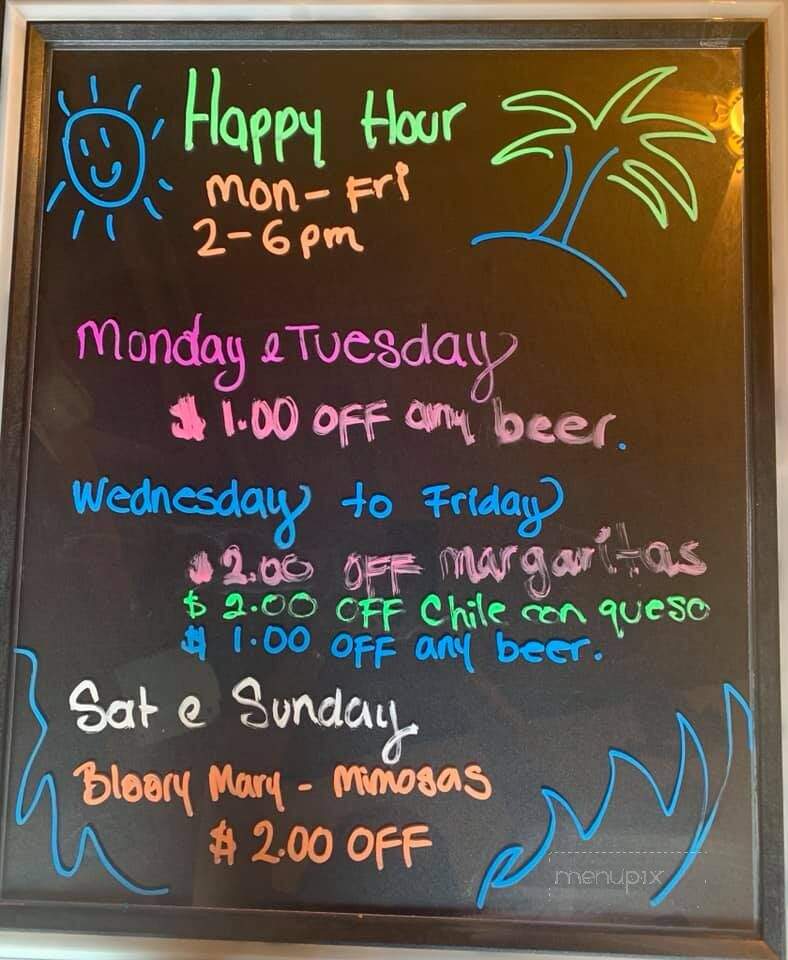 Happy Hour
Mon-Fri
2-6pm
Monday & Tuesday
$1.00 OFF any beer.
Wednesday to Friday
$2.00 OFF margaritas
$2.00 OFF Chile con queso
$1.00 OFF any beer.
Sat & Sunday
Bloory Mary - Mimosas
$2.00 OFF
menupix